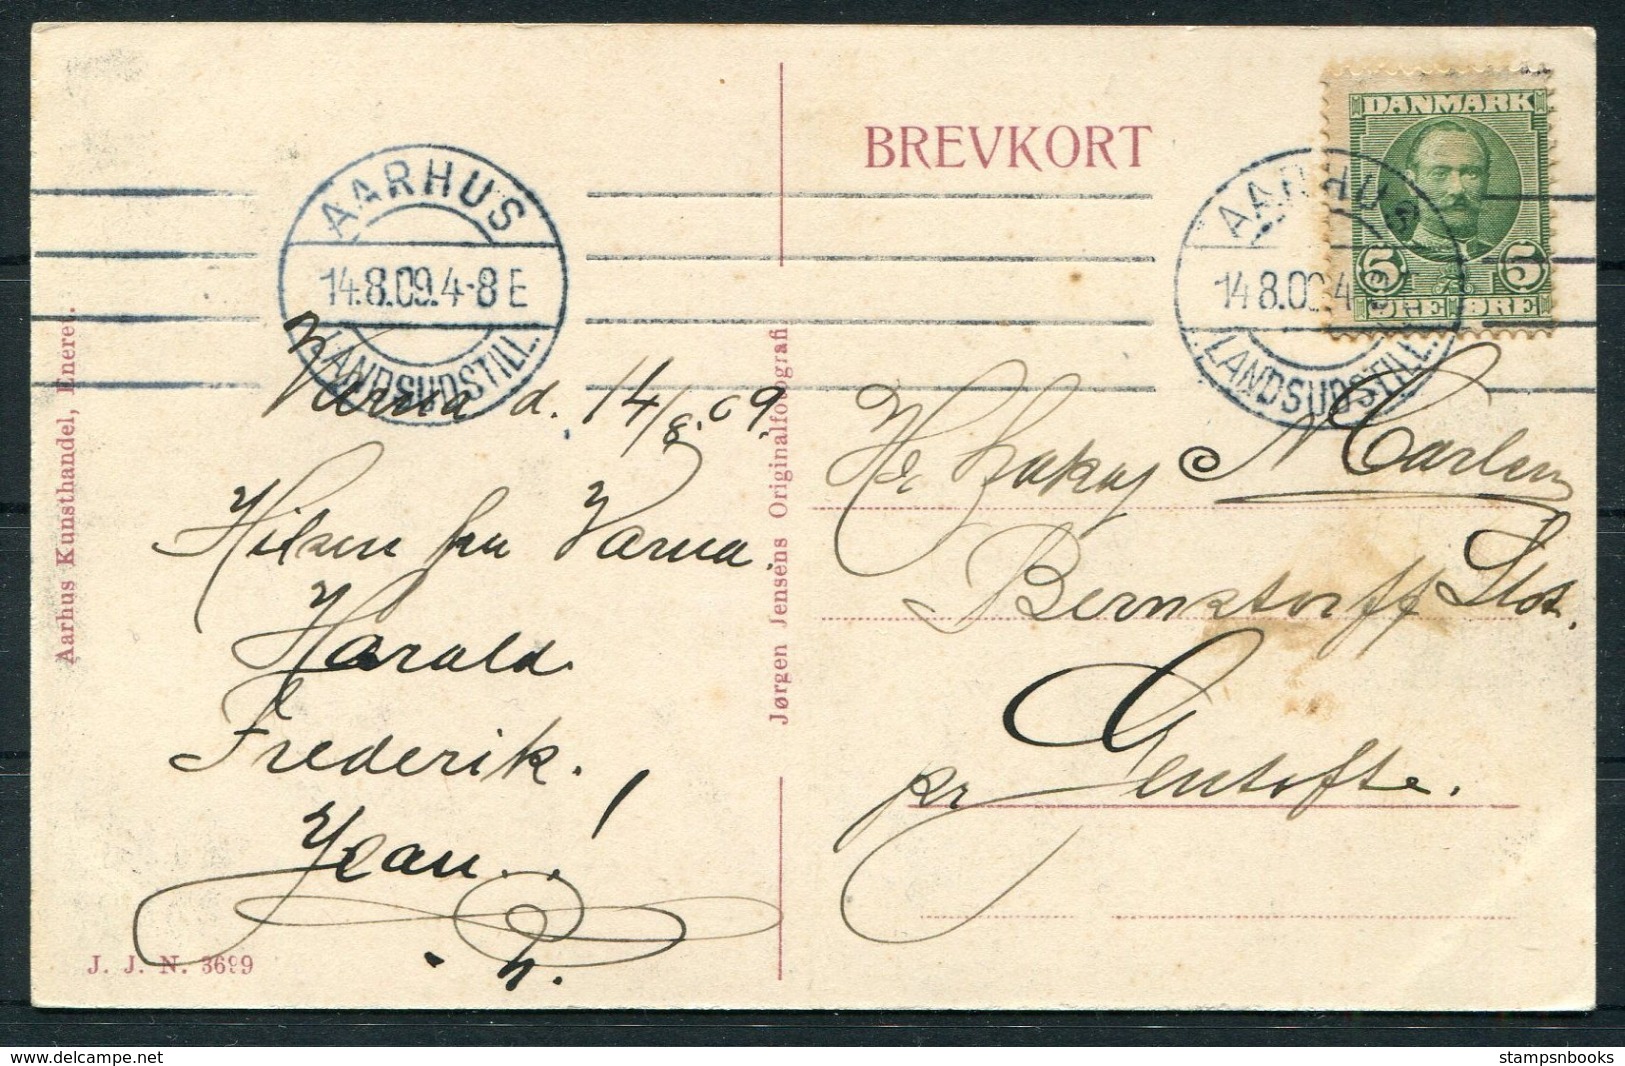 BREVKORT
DANMARK
5 5
ØRE ØRE
AARHUS
14.8.09.4-8 E
LANDSUDSTILL.
AARHUS
14 8.09 4-8 E
LANDSUDSTILL.
Varna d. 14/8. 09.
Hilsen fra Varna.
Harald
Frederik.
Jean..!
Hr Lakaj M Carlsen
Bernstorff Slot.
pr Gentofte.
Aarhus Kunsthandel, Eneret.
Jørgen Jensens Originalfotografi
J. J. N. 3699
stampsnbooks